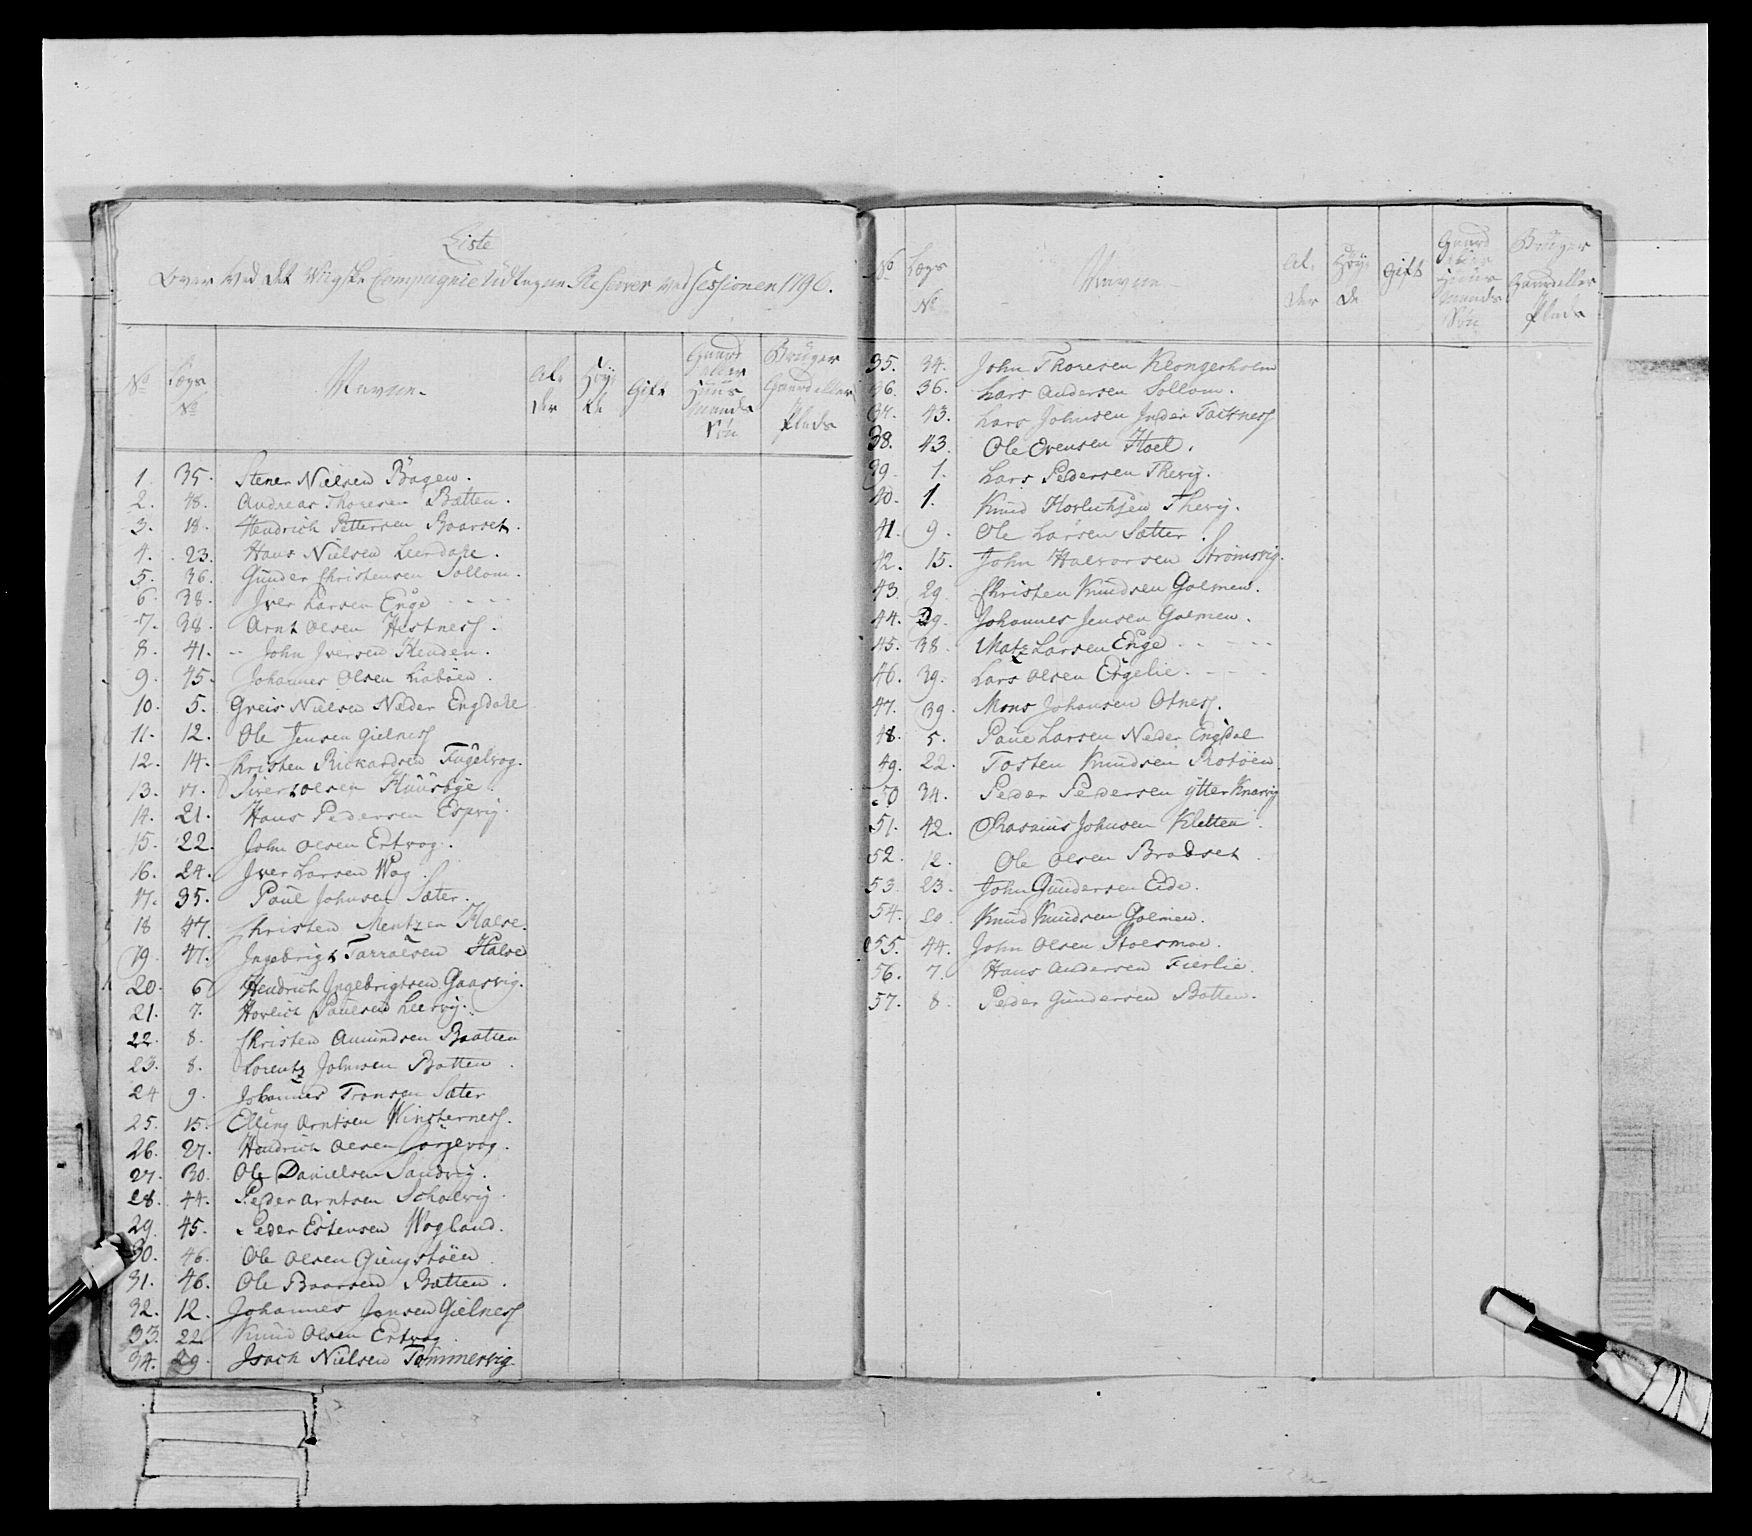 Liste
Over ved det Wigske Compagnie Udtagne Reserver ved Sessionen 1796.
No Lægs No Navne. Al, der Höy, de Gift Gaard eller Huus Mands Sön Bruger Gaard eller Plads
1. 35. Stener Nielsen Bögen.
2. 48. Andreas Thoresen Batten.
3. 18. Hendrich Pettersen Baarset.
4. 23. Hans Nielsen Leerdahl.
5. 36. Gunder Christensen Sollom.
6. 38. Iver Larsen Enge
7. 38. Arnt Olsen Hestness.
8. 41. John Iversen Henden.
9. 45. Johannes Olsen Liaböen.
10. 5. Greis Nielsen Neder Engdahl
11. 12. Ole Jensen Gielness
12. 14. Christen Rickardsen Fugelvog.
13. 17. Siver Olsen Huusbye.
14. 21. Hans Pedersen Espvig
15. 22. John Olsen Ertvog.
16. 24. Iver Larsen Wog.
17. 35. Paul Johnsen Sæter.
18 47. Christen Mentzen Halse.
19. 47. Ingebrigt Tarralsen Halse
20. 6 Hendrich Ingebrigtsen Gaasvig.
21. 7. Hovlich Paulsen Leervig.
22. 8. Christen Amundsen Baatten
23. 8. Lorentz Johnsen Botten
24 9. Johannes Tronsen Sæter
25. 15. Elling Arntsen Winsterness.
26. 27. Hendrich Olsen Korgevog.
27. 30. Ole Danielsen Sandvig.
28. 44. Peder Arntsen Schalvig.
29. 45. Peder Estensen Wogland.
30. 46. Ole Olsen Giengstöen
31. 46. Ole Baarsen Batten.
32. 12. Johannes Jensen Gielness
33. 22. Knud Olsen Ertvog.
34. 29. Isach Nielsen Tömmervig
No Lægs No Navne Al, der Höy, de Gift Gaard eller Huus Mands Sön Bruger Gaard eller Plads
35. 34. John Thoresen Klongerholm
36. 36. Lars Andersen Sollom.
37. 43. Lars Johnsen Inder Taftness
38. 43. Ole Evensen Hoel.
39. 1. Lars Pedersen Thevig.
40. 1. Knud Thevig.
41. 9. Ole Larsen Sætter.
42. 15. John Halvorsen Strömsvig.
43. 29. Christen Knudsen Golmen.
44. 29. Johannes Jensen Golmen.
45. 38. Matz Larsen Enge
46. 39. Lars Olsen Engelie.
47. 39. Mons Johansen Otness.
48. 5. Paul Larsen Neder Engdal
49. 22. Tosten Knudsen Rotöen.
50 34. Peder Pedersen Ytter Knarvig
51. 42. Rasmus Johnsen Kletten.
52. 12. Ole Olsen Bradset
53. 23. John Gundersen Eide.
54. 29. Knud Knudsen Golmen.
55. 44. John Olsen Stoesmoe.
56. 7. Hans Andersen Fuerlie.
57. 8. Peder Gundersen Botten.